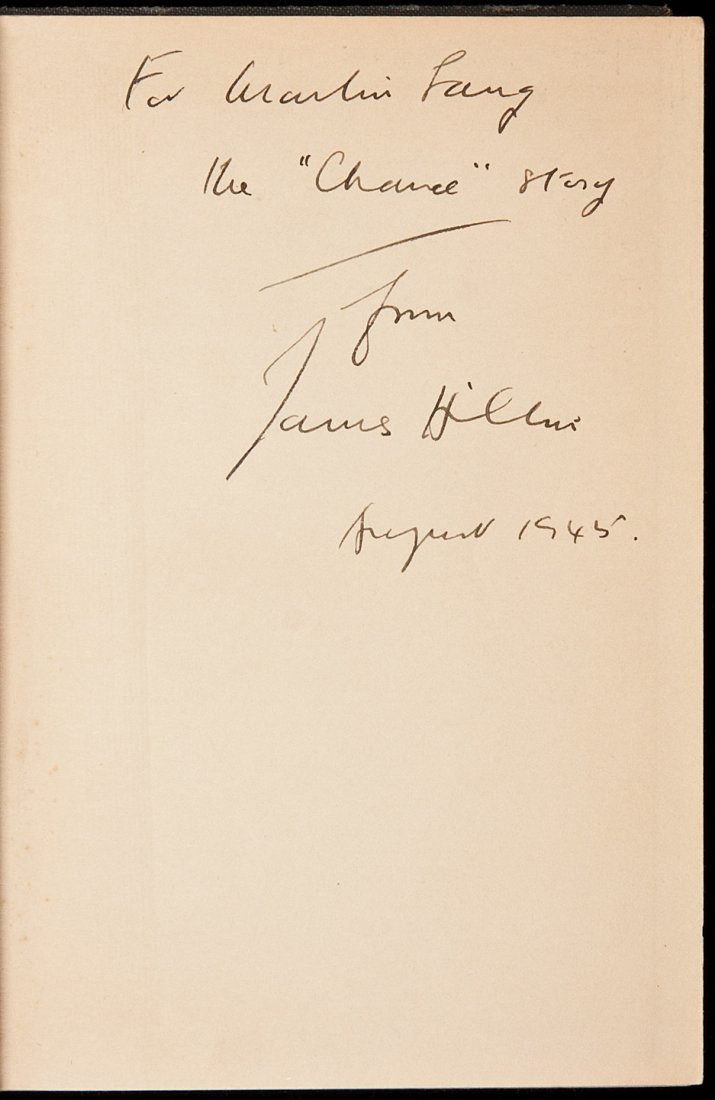 For Martin Lang
the "Chance" story
from
James Hilton
August 1945.